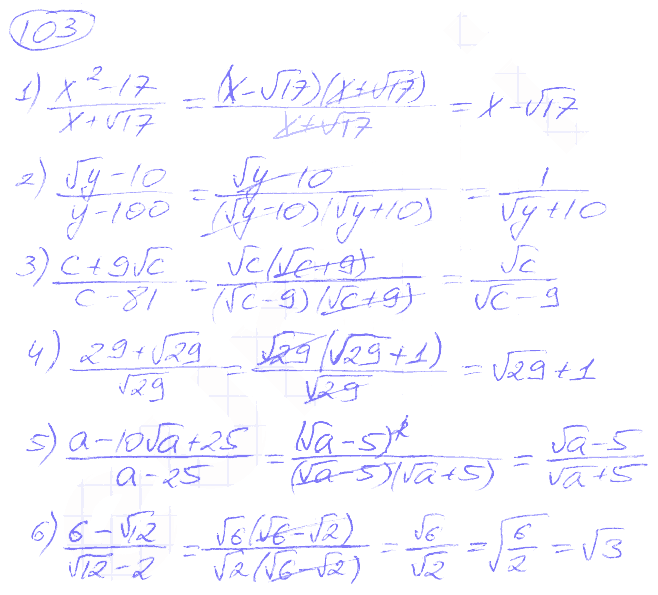 103
1) (x² - 17)/(x + √17) = ((x - √17)(x + √17))/(x + √17) = x - √17
2) (√y - 10)/(y - 100) = (√y - 10)/((√y - 10)(√y + 10)) = 1/(√y + 10)
3) (c + 9√c)/(c - 81) = (√c(√c + 9))/((√c - 9)(√c + 9)) = √c/(√c - 9)
4) (29 + √29)/√29 = (√29(√29 + 1))/√29 = √29 + 1
5) (a - 10√a + 25)/(a - 25) = (√a - 5)²/((√a - 5)(√a + 5)) = (√a - 5)/(√a + 5)
6) (6 - √12)/(√12 - 2) = (√6(√6 - √2))/(√2(√6 - √2)) = √6/√2 = √(6/2) = √3